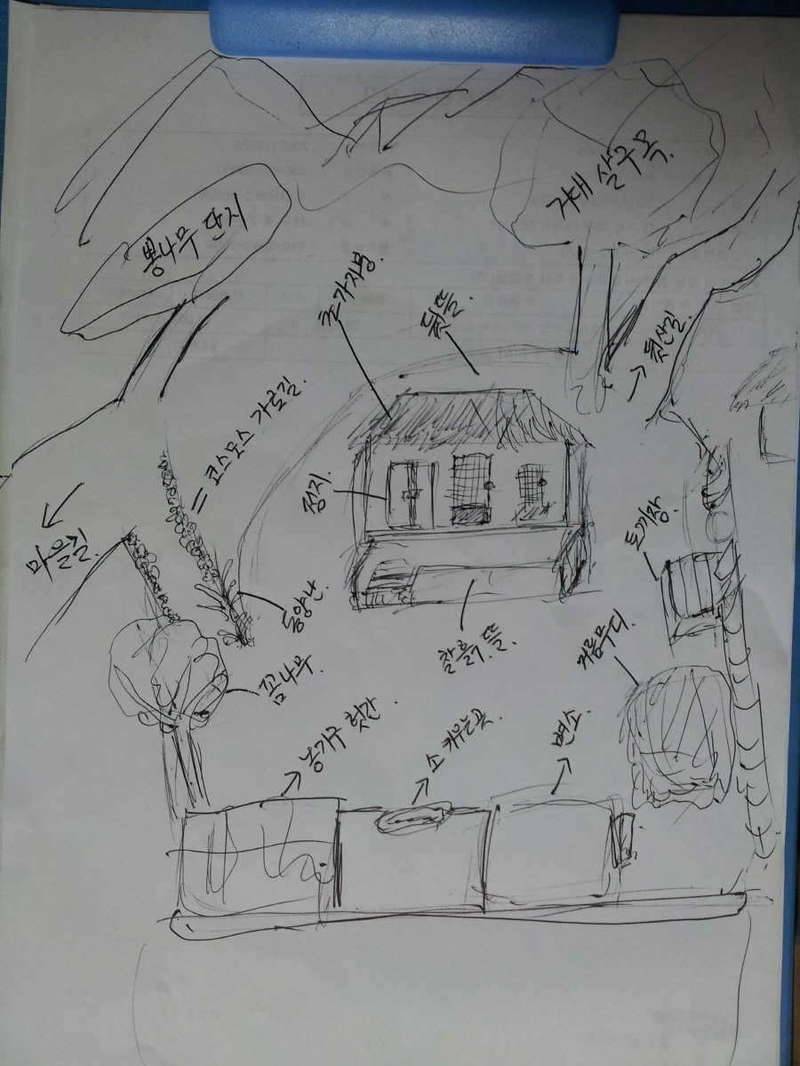 거대 살구목.
뽕나무 단지
초가지붕.
뒷뜰.
→ 뒷산길.
= 코스모스 가로길.
정지.
마을길.
토끼장.
동양난.
찰흙 뜰.
거름무디.
꼼나무.
농기구 헛간.
소 키우는곳.
변소.